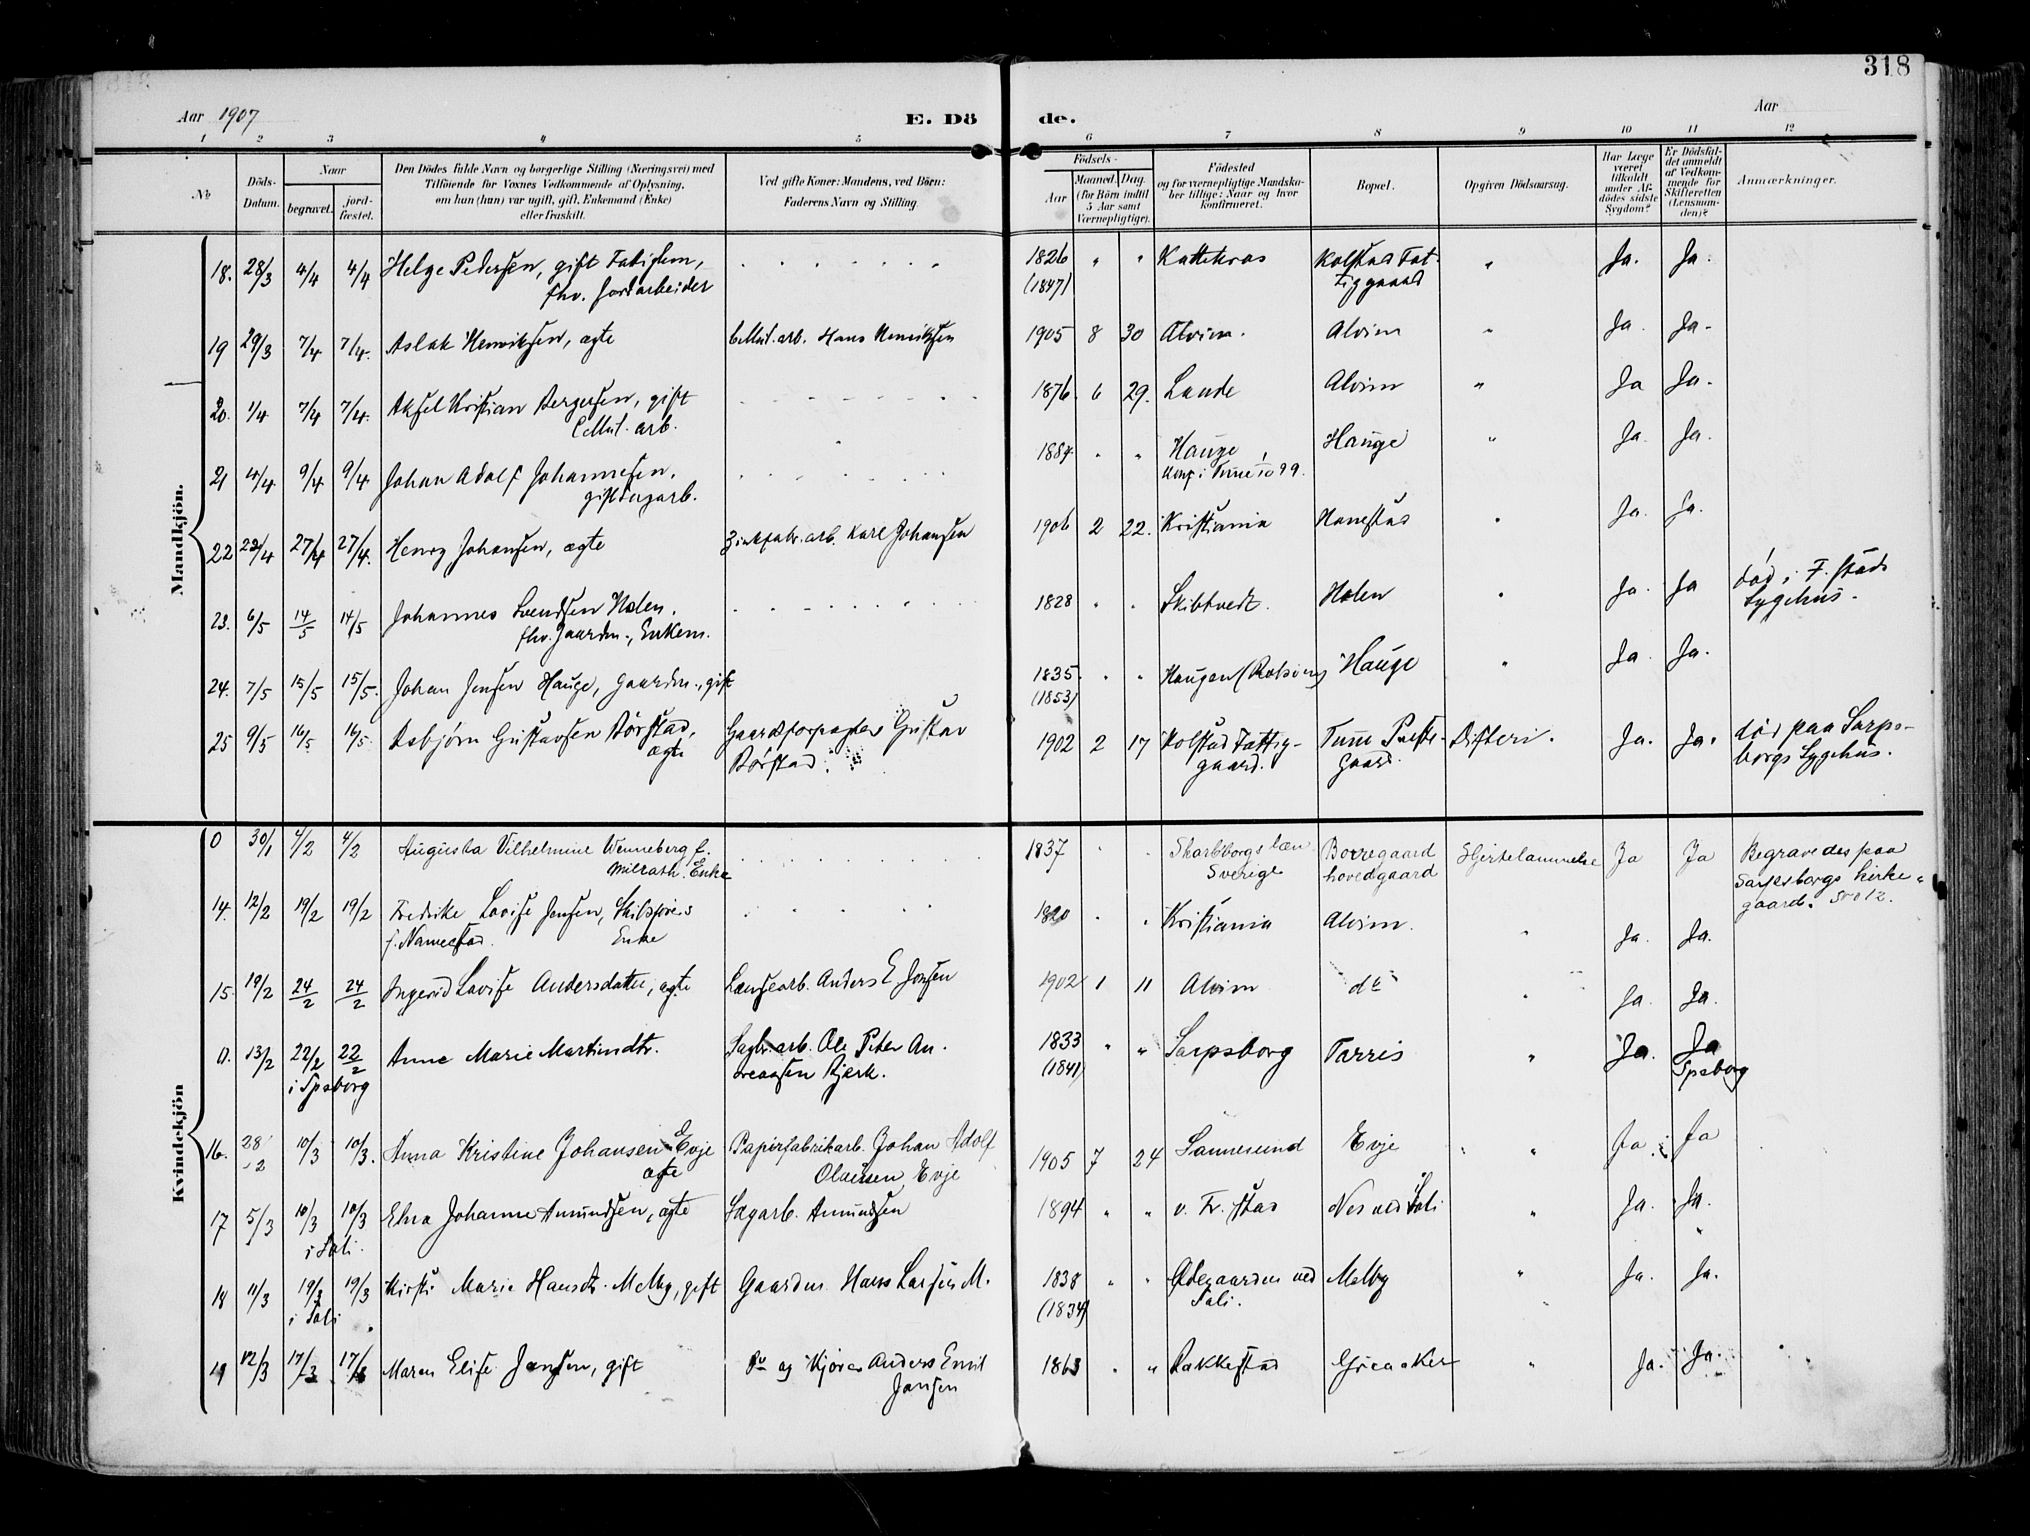 318
Aar 1907
E. Dö
de.
Aar
1 2 3 4 5 6 7 8 9 10 11 12
№
Döds-
Datum.
Naar
begravet.
jord-
fæstet.
Den Dödes fulde Navn og borgerlige Stilling (Næringsvei) med
Tilföiende for Voxnes Vedkommende af Oplysning,
om han (hun) var ugift, gift, Enkemand (Enke)
eller fraskilt.
Ved gifte Koner: Mandens, ved Börn:
Faderens Navn og Stilling.
Födsels-
Aar
Maaned. Dag.
(for Börn indtil
5 Aar samt
Værnepligtige).
Födested
og for værnepligtige Mandska-
ber tillige: Naar og hvor
konfirmeret.
Bopæl.
Opgiven Dödsaarsag.
Har Læge
været
tilkaldt
under Af-
dödes sidste
Sygdom?
Er Dödsfal-
det anmeldt
af Vedkom-
mende for
Skifteretten
(Lensman-
den)?
Anmærkninger.
Mandkjön.
18. 28/3 4/4 4/4 Helge Pedersen, gift Fatiglem, 1826 " " Kattekras Kolstad Fat- " Ja. Ja.
fhv. Jordarbeider (1847) tiggaard
19 29/3 7/4 7/4. Aslak Henriksen, ægte Cellul.arb. Hans Henriksen 1905 8 30 Alvim. Alvim " Ja. Ja.
20. 1/4 7/4 7/4. Aksel Kristian Bergersen, gift 1876. 6 29. Lande Alvim " Ja Ja.
Cellul. arb.
21 4/4 9/4 9/4 Johan Adolf Johannesen, 1884 " " Hauge Hauge " Ja. Ja.
gift Dagarb. Konf. i Tune 1/10 99.
22 23/4 27/4 27/4. Henry Johansen, ægte Zinkfabr.arb. Karl Johansen 1906 2 22. Kristiania Hanestad " Ja. Ja.
23. 6/5 14/5 14/5 Johannes Svendsen Holen, 1828 " " Skibtvedt. Holen " Ja. Ja død i F.stads
fhv. Gaardm., Enkem. Sygehus.
24. 7/5 15/5 15/5. Johan Jensen Hauge, Gaardm., gift 1835. " " Haugen (Rolvsøy) Hauge " Ja. Ja.
(1853)
25 9/5 16/5 16/5 Asbjørn Gustavsen Børstad, Gaardsforpagter Gustav 1902 2 17 Kolstad Fattig- Tune Preste- Difteri. Ja. Ja. død paa Sarps-
ægte Børstad. gaard. Gaard. borgs Sygehus.
Kvindekjön
0 30/1 4/2 4/2 Augusta Vilhelmine Wenneberg f. 1837 " " Skarbborgs læn Borregaard Hjertelammelse Ja Ja Begravedes paa
Milrath. Enke Sverige hovedgaard Sarpsborgs kirke-
gaard.
14. 12/2 19/2 19/2 Fredrike Lovise Jensen, Skibsførers 1820 " " Kristiania Alvim. " Ja. Ja.
f. Namestad. Enke
15. 19/2 24/2 24/2 Ingerid Lovise Andersdatter, ægte Lænsearb. Anders E Jensen 1902 1 11 Alvim do " Ja. Ja.
0. 13/2 22/2 22/2 Anne Marie Martinsdtr. Sagbr.arb. Ole Peter An- 1833 " " Sarpsborg Tarris " Ja. Ja
i Spsborg dreassen Bjerk. (1841) Spsborg
16. 28/2 10/3 10/3. Anna Kristine Johansen Evje Papirfabrikarb. Johan Adolf 1905 7 24 Sannesund Evje " Ja Ja
ægte Olaussen, Evje
17 5/3 10/3 10/3 Elna Johanne Amundsen, ægte Sagarb. Amundsen 1894 " " v. Fr.stad Nes ved Soli " Ja. Ja.
i Soli.
18 11/3 19/3 19/3 Kirsti Marie Hansdtr. Melby, gift Gaardm. Hans Larsen M. 1838 " " Ødegaarden ved Melby " Ja. Ja.
i Soli (1834) Soli.
19 12/3 17/3 17/3 Maren Elise Jansen, gift og Kjører Anders Emil 1863 " " Rakkestad Greaaker " Ja. Ja.
Jansen